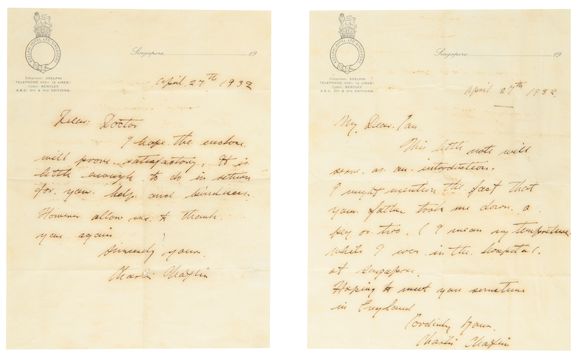 Singapore 19
TELEPHONE
April 27th 1932
Dear Doctor
I hope the enclose
will prove satisfactory. It is
little enough to do in return
for your help and kindness.
However allow me to thank
you again
Sincerely yours.
Charlie Chaplin
Singapore 19
TELEPHONE
April 27th 1932
My Dear Ian
This little note will
serve as an introduction.
I might mention the fact that
your father took me down a
peg or two. (I mean my temperature
whilst I was in the hospital.
at Singapore.
Hoping to meet you sometime
in England
Cordially Yours.
Charlie Chaplin